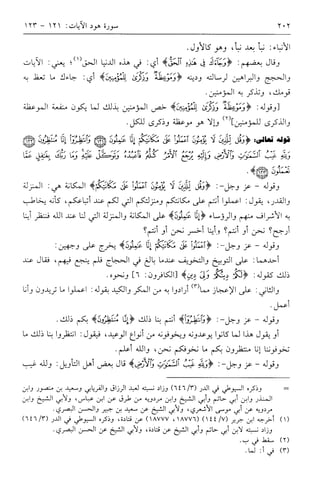 ٢٠٢ سورة هود الآيات: ١٢١ - ١٢٣
الأنباء: نبأ بعد نبأ، وهو كالأول.
وقال بعضهم: ﴿وَجَاءَكَ فِي هَٰذِهِ الْحَقُّ﴾ أي: في هذه الدنيا الحق(١)؛ يعني: الآيات
والحجج والبراهين لرسالته ودينه ﴿وَمَوْعِظَةٌ وَذِكْرَىٰ لِلْمُؤْمِنِينَ﴾ أي: جاءك ما تعظ به
قومك، وتذكر به المؤمنين.
[وقوله: ﴿وَمَوْعِظَةٌ وَذِكْرَىٰ لِلْمُؤْمِنِينَ﴾ خص المؤمنين بذلك لما يكون منفعة الموعظة
والذكرى للمؤمنين](٢) وإلا هو موعظة وذكرى للكل.
قوله تعالى: ﴿وَقُل لِّلَّذِينَ لَا يُؤْمِنُونَ اعْمَلُوا عَلَىٰ مَكَانَتِكُمْ إِنَّا عَامِلُونَ ۝ وَانتَظِرُوا إِنَّا مُنتَظِرُونَ ۝
وَلِلَّهِ غَيْبُ السَّمَاوَاتِ وَالْأَرْضِ وَإِلَيْهِ يُرْجَعُ الْأَمْرُ كُلُّهُ فَاعْبُدْهُ وَتَوَكَّلْ عَلَيْهِ وَمَا رَبُّكَ بِغَافِلٍ عَمَّا
تَعْمَلُونَ ۝﴾.
وقوله - عز وجل -: ﴿وَقُل لِّلَّذِينَ لَا يُؤْمِنُونَ اعْمَلُوا عَلَىٰ مَكَانَتِكُمْ﴾ المكانة هي: المنزلة
والقدر، يقول: اعملوا أنتم على مكانتكم ومنزلتكم التي لكم عند أتباعكم، كأنه يخاطب
به الأشراف منهم والرؤساء ﴿إِنَّا عَامِلُونَ﴾ على المكانة والمنزلة التي لنا عند الله فننظر أينا
أرجح؟ نحن أو أنتم؟ وأينا أخسر نحن أو أنتم؟
وقوله - عز وجل -: ﴿اعْمَلُوا عَلَىٰ مَكَانَتِكُمْ إِنَّا عَامِلُونَ﴾ يخرج على وجهين:
أحدهما: على التوبيخ والتخويف عندما بالغ في الحجاج فلم ينجع فيهم، فقال عند
ذلك كقوله: ﴿لَكُمْ دِينُكُمْ وَلِيَ دِينِ﴾ [الكافرون: ٦] ونحوه.
والثاني: على الإعجاز مما(٣) أرادوا به من المكر والكيد بقوله: اعملوا ما تريدون وأنا
أعمل.
وقوله - عز وجل -: ﴿وَانتَظِرُوا﴾ أنتم بنا ذلك ﴿إِنَّا مُنتَظِرُونَ﴾ بكم ذلك.
أو يقول هذا لما كانوا يوعدونه ويخوفونه من أنواع الوعيد، فيقول: انتظروا بنا ذلك ما
تخوفوننا إنا منتظرون بكم ما نخوفكم نحن، والله أعلم.
وقوله - عز وجل -: ﴿وَلِلَّهِ غَيْبُ السَّمَاوَاتِ وَالْأَرْضِ﴾ قال بعض أهل التأويل: ولله غيب
= وذكره السيوطي في الدر (٦٤٦/٣) وزاد نسبته لعبد الرزاق والفريابي وسعيد بن منصور وابن
المنذر وابن أبي حاتم وأبي الشيخ وابن مردويه من طرق عن ابن عباس، ولأبي الشيخ وابن
مردويه عن أبي موسى الأشعري، ولأبي الشيخ عن سعيد بن جبير والحسن البصري.
(١) أخرجه ابن جرير (١٤٤/٧) (١٨٧٧٦، ١٨٧٧٧) عن قتادة، وذكره السيوطي في الدر (٦٤٦/٣)
وزاد نسبته لابن أبي حاتم وأبي الشيخ عن قتادة، ولأبي الشيخ عن الحسن البصري.
(٢) سقط في ب.
(٣) في أ: لما.